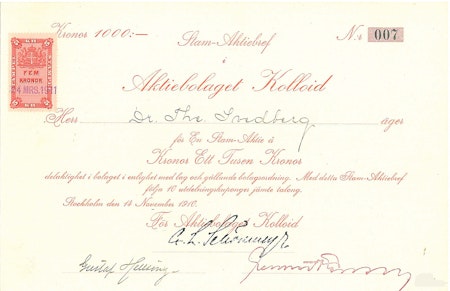 Kronor 1000:— Stam-Aktiebref N:r 007
i
Aktiebolaget Kolloid
FEM
KRONOR
24 MRS. 1911
Herr Dr. The Svedberg äger
för En Stam-Aktie à
Kronor Ett Tusen Kronor
delaktighet i bolaget i enlighet med lag och gällande bolagsordning. Med detta Stam-Aktiebref
följa 10 utdelningskuponger jämte talong.
Stockholm den 14 November 1910.
För Aktiebolaget Kolloid
Gustaf Helsing